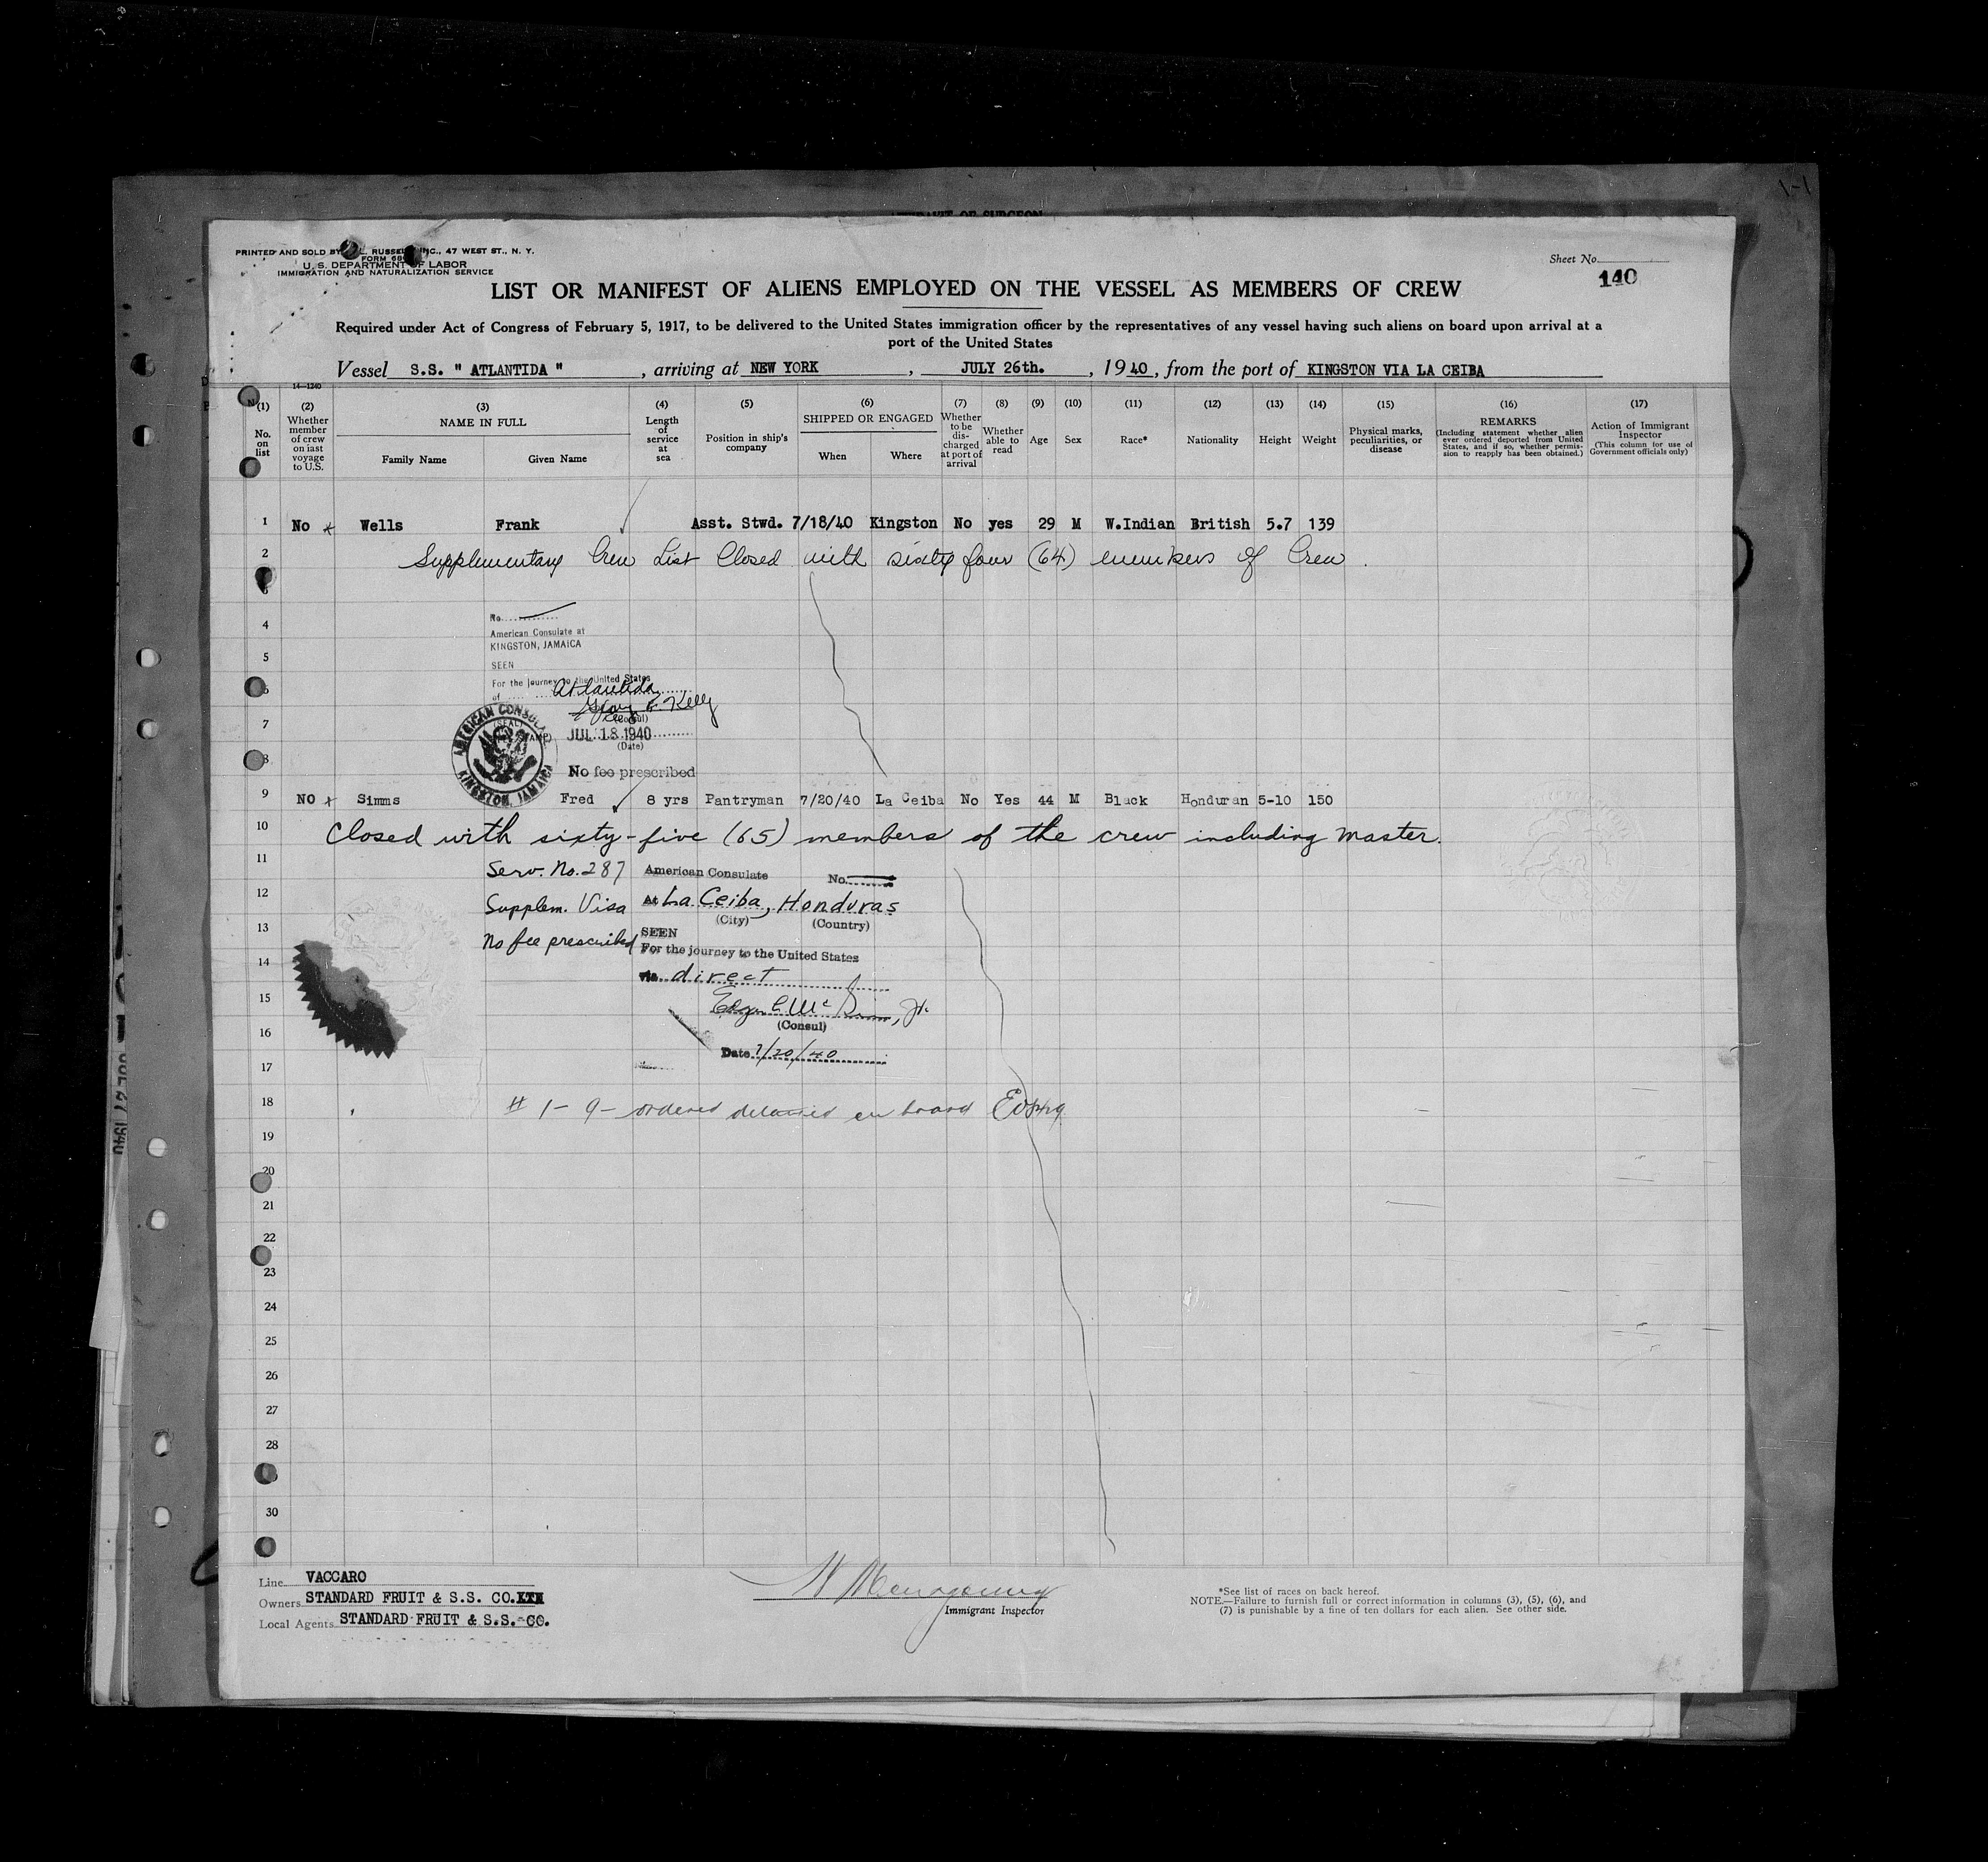 PRINTED AND SOLD BY RUSSEL INC., 47 WEST ST., N. Y.
FORM
U. S. DEPARTMENT OF LABOR
IMMIGRATION AND NATURALIZATION SERVICE
Sheet No.
140
LIST OR MANIFEST OF ALIENS EMPLOYED ON THE VESSEL AS MEMBERS OF CREW
Required under Act of Congress of February 5, 1917, to be delivered to the United States immigration officer by the representatives of any vessel having such aliens on board upon arrival at a
port of the United States
Vessel S.S. " ATLANTIDA " , arriving at NEW YORK , JULY 26th. , 1940, from the port of KINGSTON VIA LA CEIBA
14—1240
(1) No. on list
(2) Whether member of crew on last voyage to U.S.
(3) NAME IN FULL
Family Name Given Name
(4) Length of service at sea
(5) Position in ship's company
(6) SHIPPED OR ENGAGED
When Where
(7) Whether to be discharged at port of arrival
(8) Whether able to read
(9) Age
(10) Sex
(11) Race*
(12) Nationality
(13) Height
(14) Weight
(15) Physical marks, peculiarities, or disease
(16) REMARKS
(Including statement whether alien ever ordered deported from United States, and if so, whether permission to reapply has been obtained.)
(17) Action of Immigrant Inspector
(This column for use of Government officials only)
1 No x Wells Frank Asst. Stwd. 7/18/40 Kingston No yes 29 M W.Indian British 5.7 139
2 Supplementary Crew List Closed with sixty four (64) members of Crew.
3
No.
4 American Consulate at
KINGSTON, JAMAICA
5 SEEN
For the journey to the United States
6 of Atlantida
Kelly
(Consul)
7 (SEAL)
JUL 18 1940
(Date)
AMERICAN CONSULATE
KINGSTON, JAMAICA
8 No fee prescribed
9 NO x Simms Fred 8 yrs Pantryman 7/20/40 La Ceiba No Yes 44 M Black Honduran 5-10 150
10 Closed with sixty-five (65) members of the crew including Master.
11 Serv. No. 287 American Consulate No.
12 Supplem. Visa At La Ceiba, Honduras
(City) (Country)
13 No fee prescribed SEEN
For the journey to the United States
14 via direct
15 Jr.
(Consul)
16 Date 7/20/40
17
18 # 1-9- ordered detained on board
19
20
21
22
23
24
25
26
27
28
30
Line VACCARO
Owners STANDARD FRUIT & S.S. CO.
Local Agents STANDARD FRUIT & S.S. CO.
Immigrant Inspector
*See list of races on back hereof.
NOTE.—Failure to furnish full or correct information in columns (3), (5), (6), and
(7) is punishable by a fine of ten dollars for each alien. See other side.